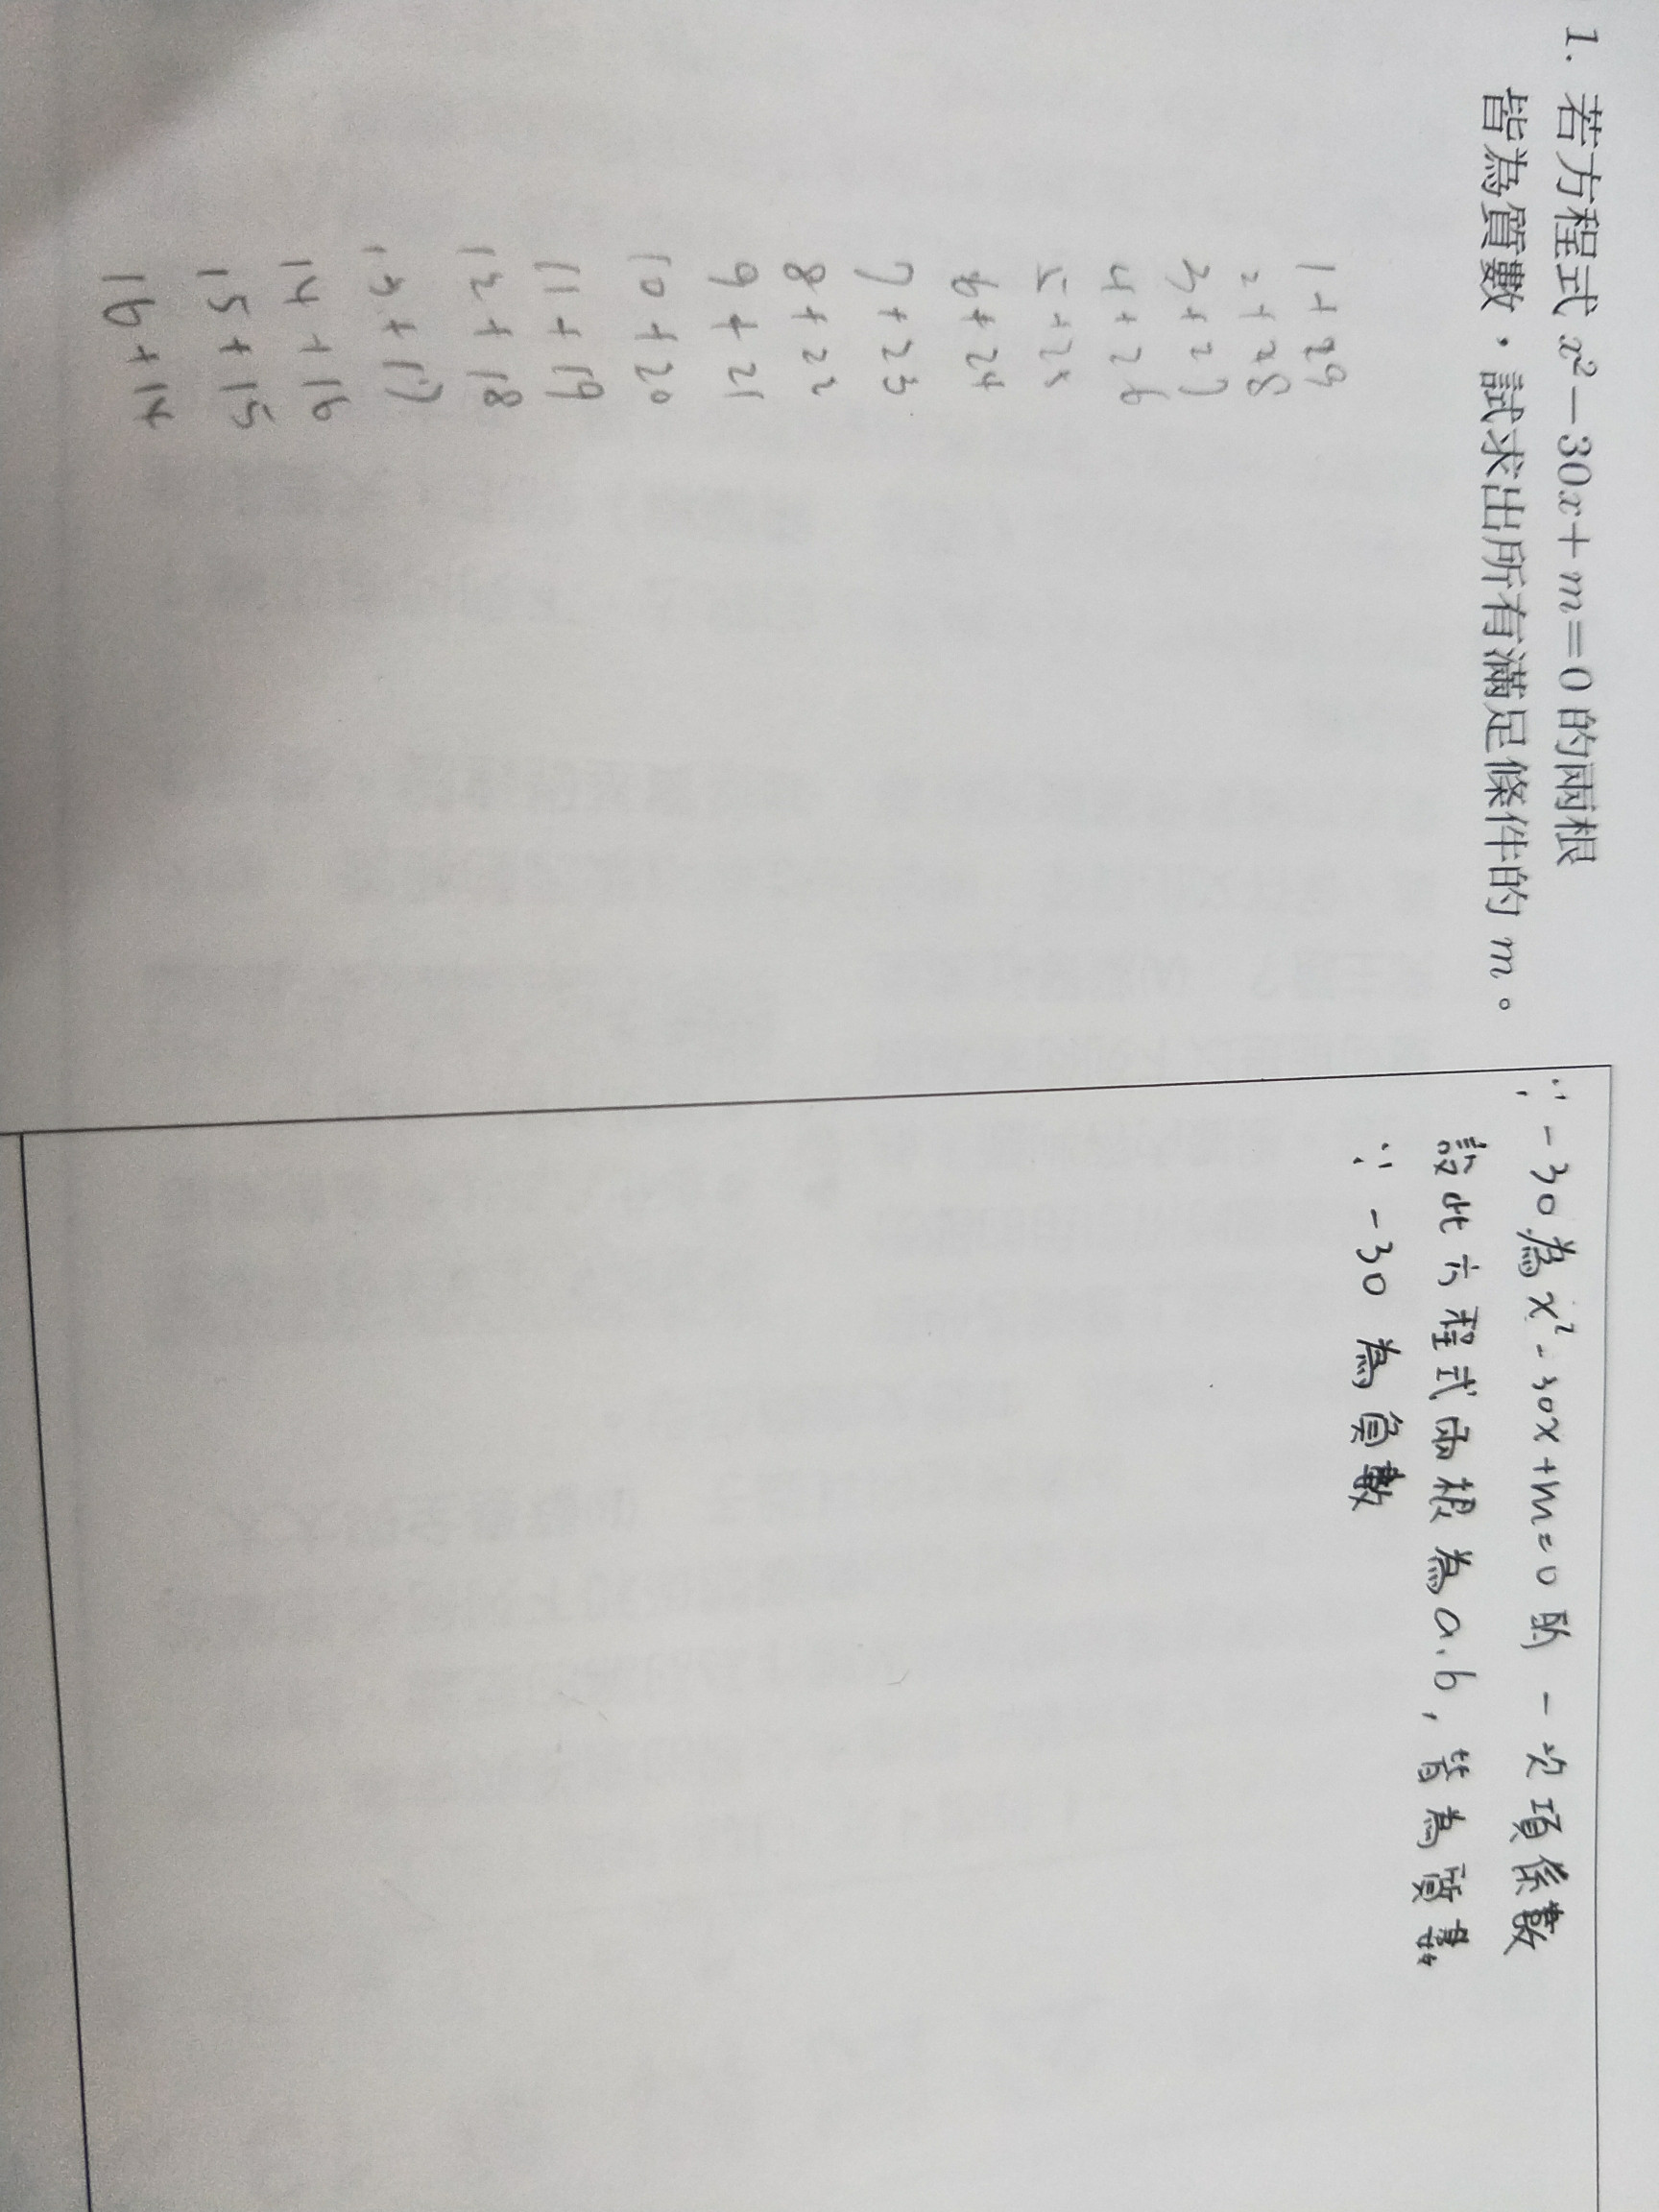 1. 若方程式 x²－30x＋m＝0 的兩根
皆為質數，試求出所有滿足條件的 m。
1+29
2+28
3+27
4+26
5+25
6+24
7+23
8+22
9+21
10+20
11+19
12+18
13+17
14+16
15+15
16+14
∵ -30為x²-30x+m=0的一次項係數
設此方程式兩根為a.b,皆為質數
∵ -30為負數